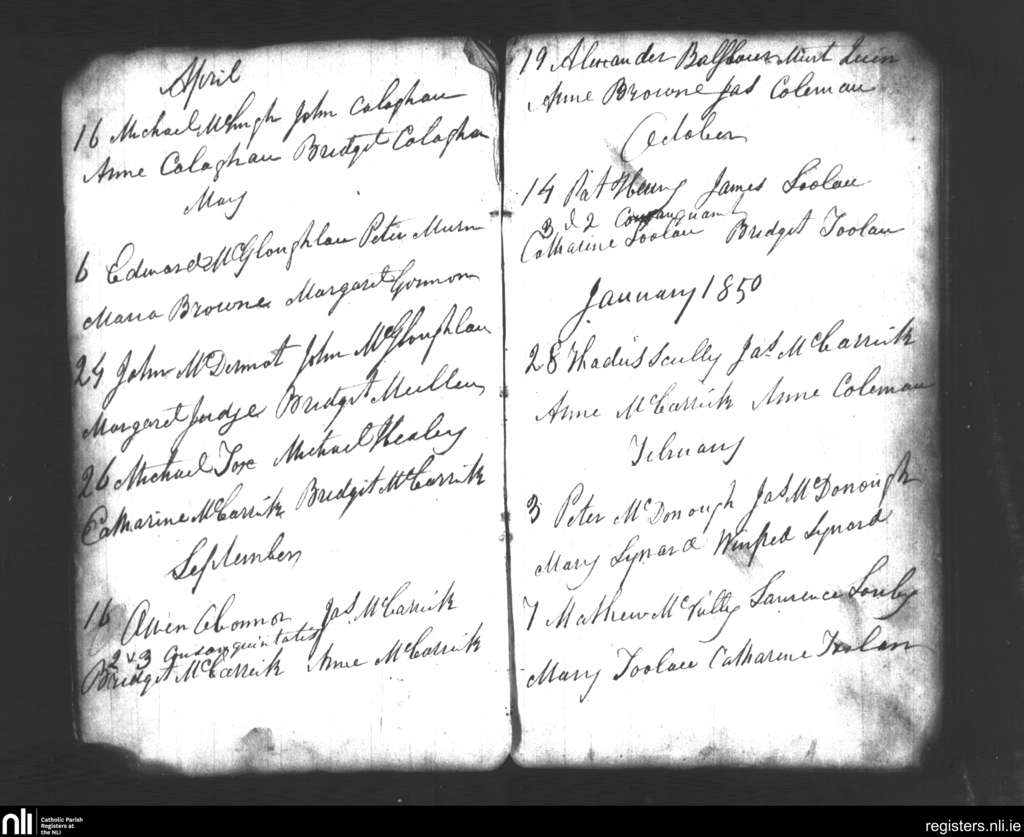 April
16 Michael McHugh John Calaghan
Anne Calaghan Bridget Calaghan
May
6 Edward McGloughlan Peter
Maria Browne Margaret Gonnon
24 John McDermot John McGloughlan
Margaret Judge Bridget Mullen
26 Michael Fox Michael Healey
Catharine McCarrik Bridget McCarrik
September
16 Owen OConnor Jas McCarrik
2 v 3 Consanguinitatis
Bridget McCarrik Anne McCarrik
19 Alexander Balfbour Murt Quin
Anne Browne Jas Coleman
October
14 Pat Henry James Toolan
3 & 2
Catharine Toolan Bridget Toolan
January 1850
28 Thadius Scully Jas McCarrik
Anne McCarrik Anne Coleman
February
3 Peter McDonough Jas McDonough
Mary Lynard Winfred Lynard
7 Mathew McNulty Laurence
Mary Toolan Catharine Toolan
nli
Catholic Parish
Registers at
the NLI
registers.nli.ie